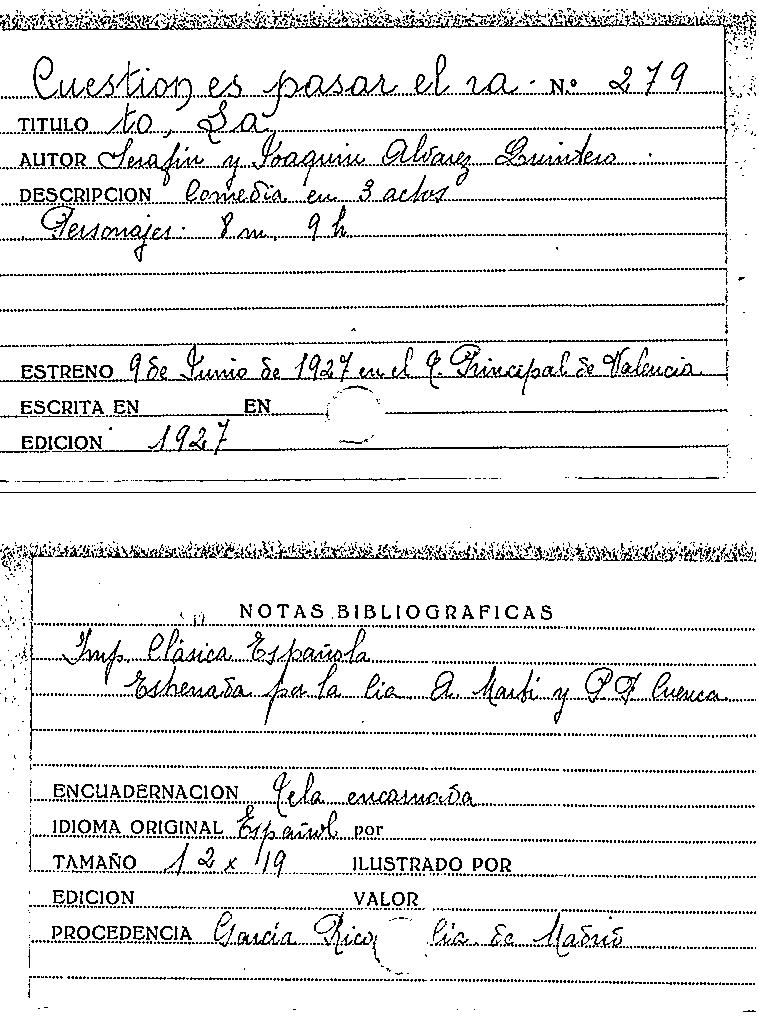 Cuestion es pasar el ra- N.º 279
TITULO to, La
AUTOR Serafin y Joaquin Alvarez Quintero
DESCRIPCION Comedia en 3 actos
Personajes. 8 m. 9 h
ESTRENO 9 de Junio de 1927 en el T. Principal de Valencia
ESCRITA EN EN
EDICION 1927
NOTAS BIBLIOGRAFICAS
Imp. Clásica Española
Estrenada por la Cia A. Martí y P. F. Cuenca
ENCUADERNACION Tela encarnada
IDIOMA ORIGINAL Español por
TAMAÑO 12 x 19 ILUSTRADO POR
EDICION VALOR
PROCEDENCIA García Rico Cia. de Madrid